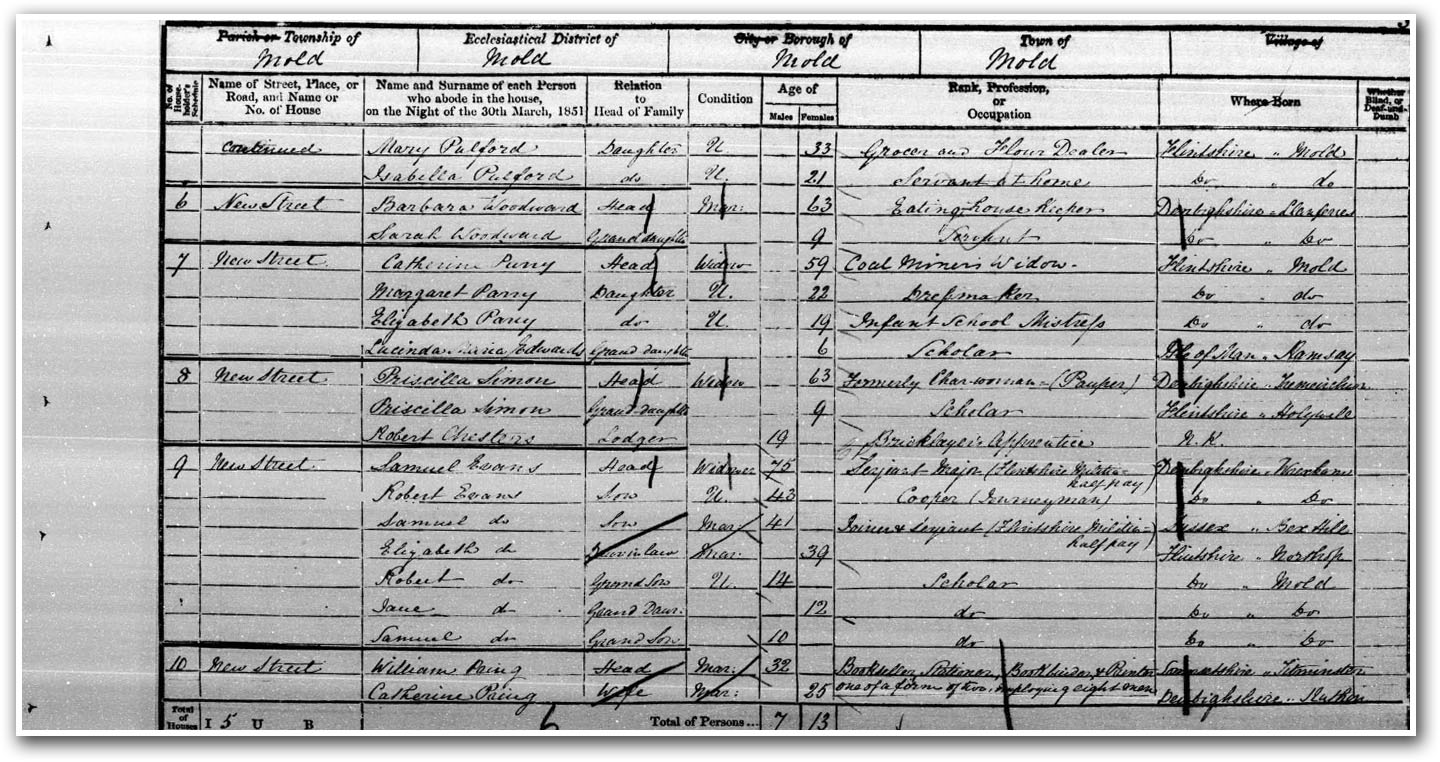 Parish or Township of Ecclesiastical District of City or Borough of Town of Village of
Mold Mold Mold Mold
No. of House-holder's Schedule Name of Street, Place, or Road, and Name or No. of House Name and Surname of each Person who abode in the house, on the Night of the 30th March, 1851 Relation to Head of Family Condition Age of Males Females Rank, Profession, or Occupation Where Born Whether Blind, or Deaf-and-Dumb
Continued Mary Pulford Daughter U. 33 Grocer and Flour Dealer Flintshire " Mold
Isabella Pulford do U. 21 Servant at home Do " do
6 New Street Barbara Woodward Head Mar: 63 Eating house Keeper Denbighshire " Llanferres
Sarah Woodward Grand daughter 9 Servant Do " Do
7 New Street Catherine Parry Head Widow 59 Coal Miner's Widow Flintshire " Mold
Margaret Parry Daughter U. 22 Dressmaker Do " do
Elizabeth Parry do U. 19 Infant School Mistress Do " do
Lucinda Maria Edwards Grand daughter 6 Scholar Isle of Man " Ramsay
8 New Street Priscilla Simon Head Widow 63 Formerly Char-woman - (Pauper) Denbighshire
Priscilla Simon Grand daughter 9 Scholar Flintshire " Holywell
Robert Lodger 19 Bricklayer's Apprentice N. K.
9 New Street Samuel Evans Head Widower 75 Serjeant Major (Flintshire Militia half pay) Denbighshire " Wrexham
Robert Evans Son U. 43 Cooper (Journeyman) Do " Do
Samuel do Son Mar: 41 Joiner & Serjeant (Flintshire Militia half pay) Sussex " Bex Hill
Elizabeth do Daur in law Mar: 39 Flintshire " Northop
Robert do Grand Son U. 14 Scholar Do " Mold
Jane do Grand Daur: 12 do Do " Do
Samuel do Grand Son 10 do Do " Do
10 New Street William Head Mar: 32 Bookseller, Stationer, Bookbinder & Printer " Ilminster
Catherine Wife Mar: 25 one of a firm of two, employing eight men Denbighshire " Ruthin
Total of Houses I 5 U B Total of Persons... 7 13